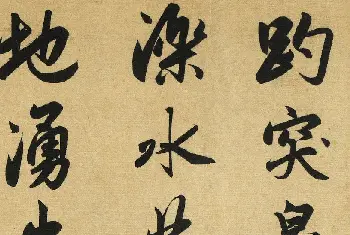 趵突泉
濼水
地湧出